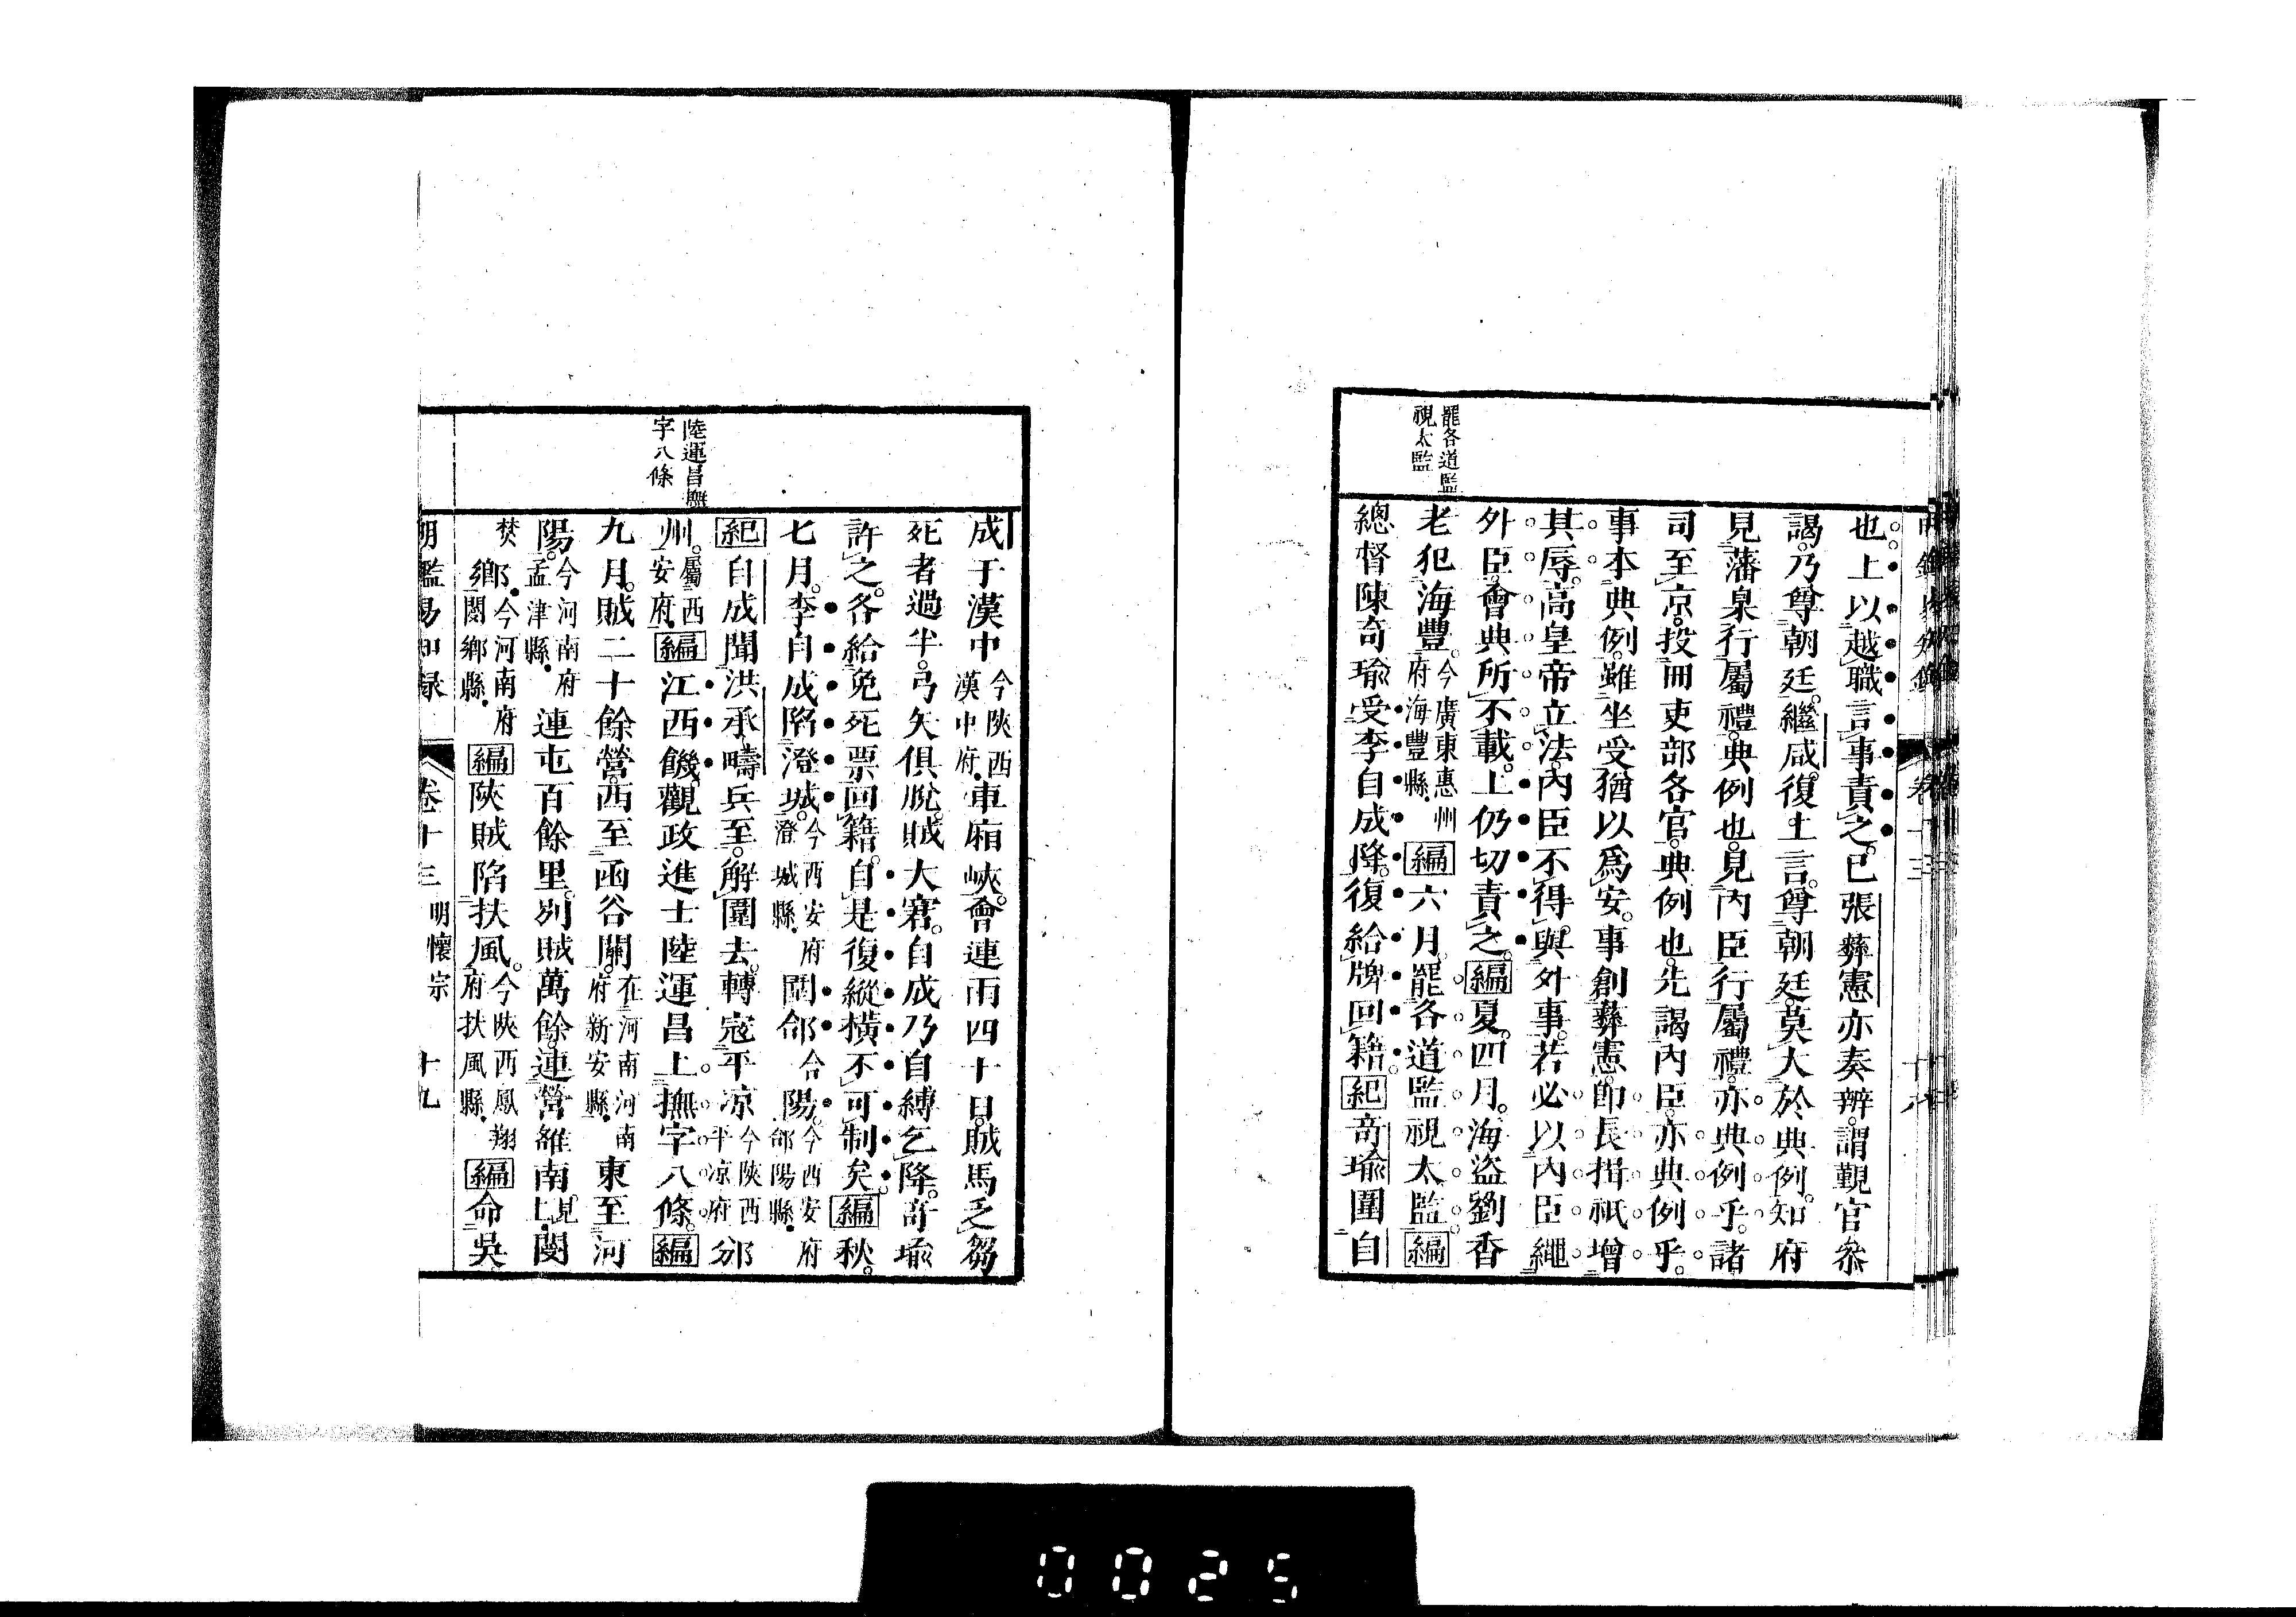 罷各道監
視太監
也上以越職言事責之已張彝憲亦奏辨謂覲官叅
謁乃尊朝廷繼咸復上言尊朝廷莫大於典例知府
見藩臬行屬禮典例也見內臣行屬禮亦典例乎諸
司至京投冊吏部各官典例也先謁內臣亦典例乎
事本典例雖坐受猶以爲安事創彝憲卽長揖祇增
其辱高皇帝立法內臣不得與外事若必以內臣繩
外臣會典所不載上仍切責之編夏四月海盜劉香
老犯海豐今廣東惠州府海豐縣編六月罷各道監視太監編
總督陳奇瑜受李自成降復給牌回籍紀奇瑜圍自
陸運昌撫
字八條
成于漢中今陝西漢中府車廂峽會連雨四十日賊馬乏芻
死者過半弓矢俱脫賊大窘自成乃自縛乞降奇瑜
許之各給免死票回籍自是復縱橫不可制矣編秋
七月李自成陷澄城今西安府澄城縣圍郃合陽今西安府郃陽縣
紀自成聞洪承疇兵至解圍去轉寇平凉今陝西平凉府邠
州屬西安府編江西饑觀政進士陸運昌上撫字八條編
九月賊二十餘營西至函谷關在河南河南府新安縣東至河
陽今河南府孟津縣連屯百餘里別賊萬餘連營雒南見上閿
焚鄉今河南府閿鄉縣編陝賊陷扶風今陝西鳳翔府扶風縣編命吳
明鑑易知録 卷十三 明懷宗 十九
0025